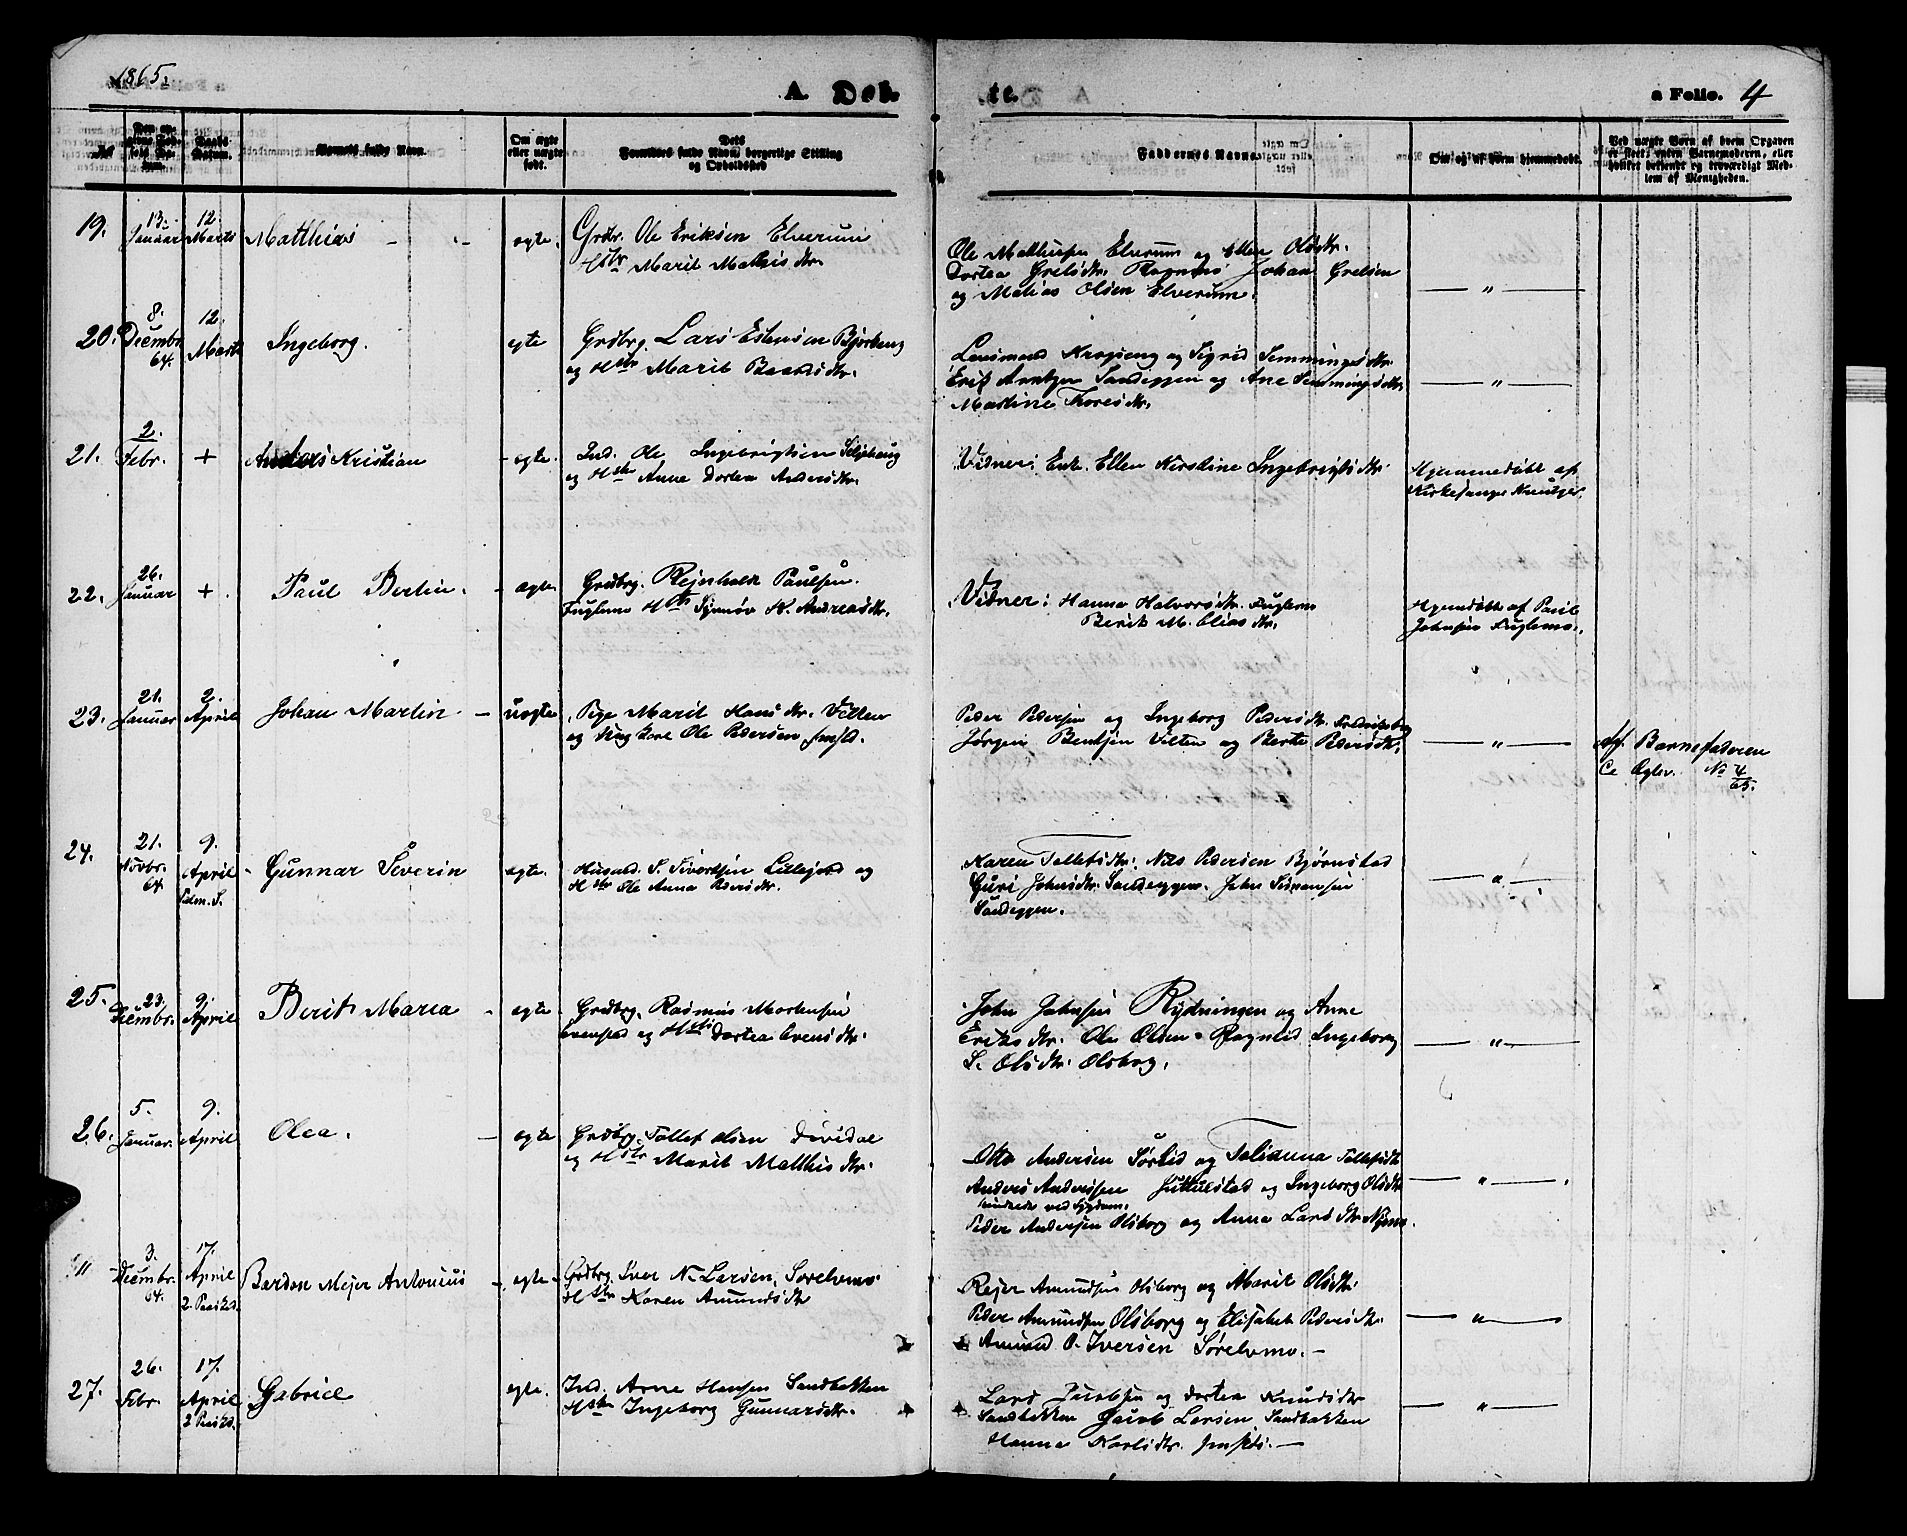 1865.
A. Døb-
te.
a Folio. 4
Barnets fulde Navn.
Om ægte eller uægte født.
Dets Forældres fulde Navn, borgerlige Stilling og Opholdssted
Faddernes Navne
Om og af hvem hjemmedøbt.
Ved uægte Børn af hvem Opgaven er skeet; enten Barnemoderen, eller hvilket bekjendt og troværdigt Medlem af Menigheden.
19. 13. Januar 12. Marts Matthias ægte. Grdbr. Ole Eriksen Elverum
Hstr Marit Mathisdtr.
Ole Mathisen Elverum og Ellen Olsdtr.
Dortea Grelsdtr. Johan Grelsen
og Matias Olsen Elverum.
20. 8. Decembr. 64. 12. Marts Ingeborg. egte Grdbrg. Lars Estensen Bjørkeng
og Hstr Marit Baardsdtr.
Lensmand og Sigrid Semmingsdtr.
Erik Arntzen Sandeggen og Ane Semmingsdtr.
Martine Thoresdtr.
21. 2. Febr. + Anders Kristian egte. Ind. Ole Ingebrigtsen Seljehaug
og Hstr Anne Dortea Andersdtr.
Vidner: Enk. Ellen Kirstine Ingebrigtsdtr.
Hjemmedøbt af
Kirkesanger
22. 26. Januar + Paul Berlin. ægte. Grdbrg. Rejnholdt Paulsen
Fuglemo Hstr Synnøv K. Andreasdtr.
Vidner: Hanna Halvorsdtr. Fuglemo
Berit M. Eliasdtr.
Hjemdøbt af Paul
Johnsen Fuglemo.
23. 21. Januar 2. April Johan Martin uægte Pige Marit Hansdtr. Velten
og Ung Karl Ole Pedersen
Peder Pedersen og Ingeborg Pedersdtr. Fredriksberg
Jørgen Bentsen Velten og Berte Pedersdtr.
Af Barnefaderen
No 4/65.
24. 21. Novbr. 64 9. April Palm. S. Gunnar Severin egte. Husmd. S. Sivertsen Lillejord og
Hstr Ole Anna Pedersdtr.
Karen Tollefsdtr. Nils Pedersen Bjørnstad
Guri Johnsdtr. Sandeggen. John Simensen
Sandeggen.
25. 23. Decembr. 9. April Berit Maria egte Grdbrg. Rasmus Mortensen
Evenstad og Hstr Dortea Evensdtr.
John Johnsen Rydningen og Anne
Eriksdtr. Ole Olsen Ragnlid Ingeborg
S. Olsdtr. Olsborg.
26. 5. Januar. 9. April Olea. egte Grdbrg. Tollef Olsen Dividal
og Hstr Marit Mathisdtr.
Otto Andersen Sørlid og Tollefsdtr
Anders Andersen Juttulstad og Ingeborg Olsdtr
hindrede ved Sygdom.
Peder Andersen Olsborg og Anna Larsdtr Nymo.
3. Decembr. 64. 17. April 2. Paaskd. Bardon Mejer Antonius egte Grdbrg. Iver N. Larsen, Sørelvmo
Hstr Karen Amundsdtr
Rejer Amundsen Olsborg og Marit Olsdtr.
Peder Amundsen Olsborg og Elisabet Pedersdtr.
Amund O. Iversen Sørelvmo.
27. 26. Febr. 17. April 2 Paaskd. Gabriel egte. Ind. Arne Hansen Sandbakken
Hstr Ingeborg Gunnarsdtr.
Lars Jacobsen og Dortea Knudsdtr
Sandbakken Jacob Larsen Sandbakken
Hanna Karlsdtr.